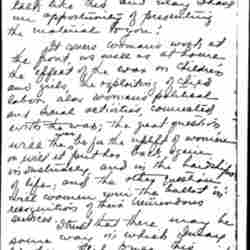 talk like this and may I have
an opportunity of presenting
the material to you?
It covers woman's work at
the front, as well as at home
the effect of the war on children
and girls, the exploiting of child
labor, also woman's political
and social activities connected
with the war; the great question
will the war be for the uplift of women
or will it put her back again
industrially and in the hardships
of life; and the other question
will women gain the ballot in
recognition of their tremendous
services.
I trust that there may be
some way in which you may